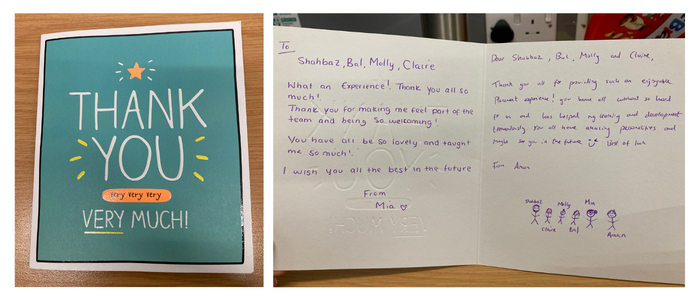 THANK
YOU
very very very
VERY MUCH!
To
Shahbaz, Bal, Molly, Claire
What an Experience! Thank you all so
much!
Thank you for making me feel part of the
team and being so welcoming!
You have all be so lovely and taught
me so much!
I wish you all the best in the future
From
Mia
Dear Shahbaz, Bal, Molly and Claire,
Thank you all for providing such an enjoyable
Placement experience! You have all worked so hard
for us and has helped my learning and development
tremendously. You all have amazing personalities and
maybe see you in the future Best of luck
From Aman
Shahbaz Molly Mia
Claire Bal Aman